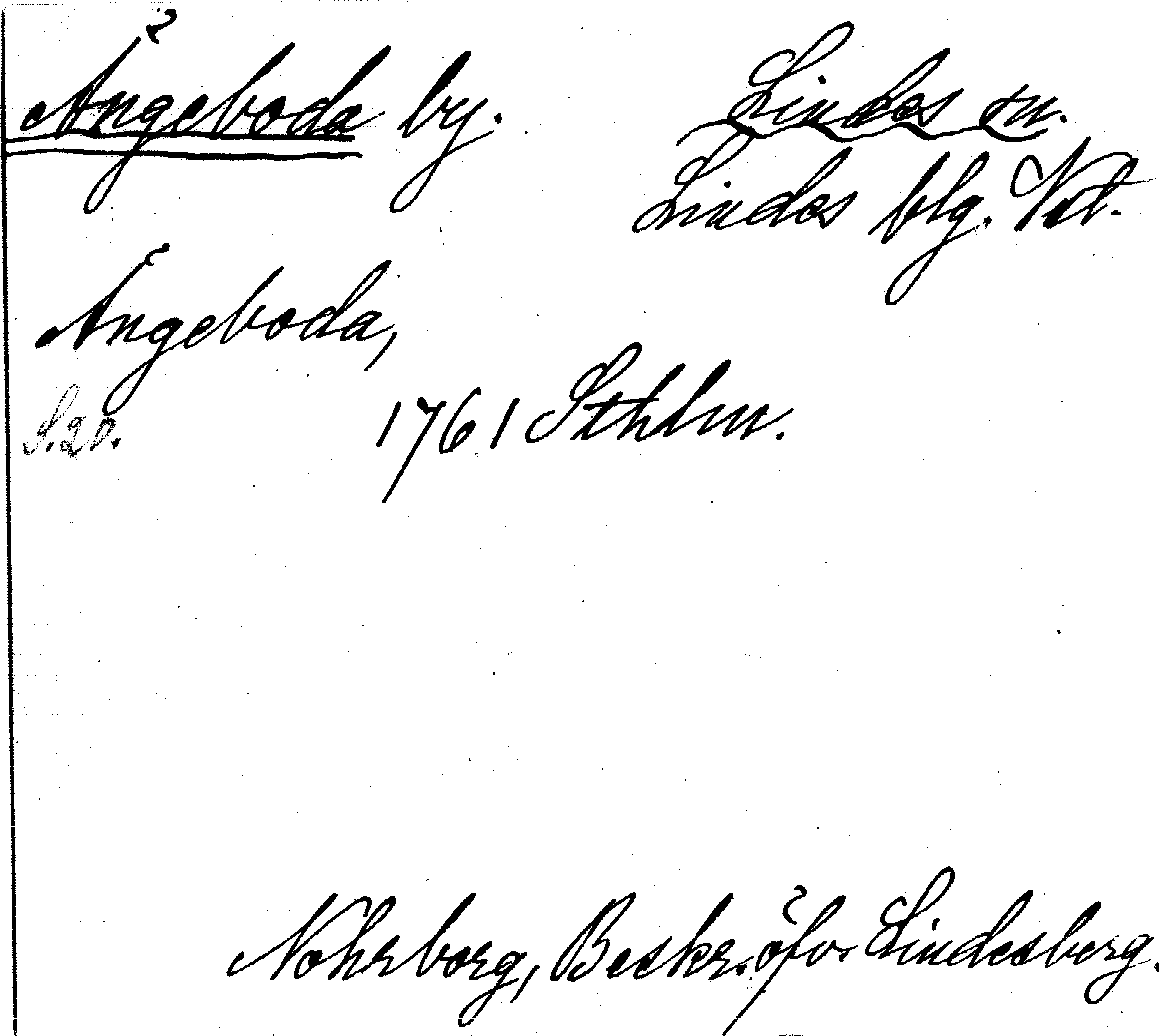 Ängeboda by. Lindes sn.
Lindes blg. Vstl.
Ängeboda,
S.20. 1761 Sthlm.
Nohrborg, Beskr. öfv. Lindesberg.